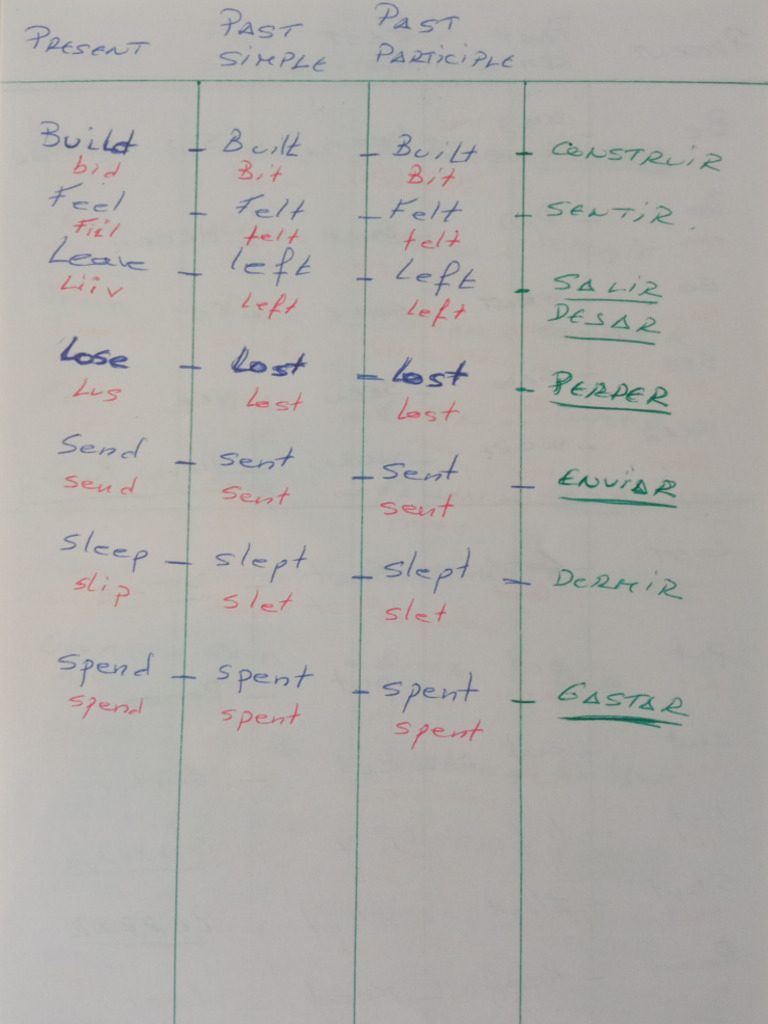 PRESENT PAST SIMPLE PAST PARTICIPLE
Build - Built - Built - CONSTRUIR
bid Bit Bit
Feel - Felt - Felt - SENTIR.
Fiil felt felt
Leave - left - Left - SALIR
Liiv Left left DESAR
Lose - Lost - Lost - PERDER
Lus Lost Lost
Send - sent - sent - ENVIAR
send sent sent
Sleep - slept - slept - DORMIR
slip slet slet
Spend - spent - spent - GASTAR
spend spent spent